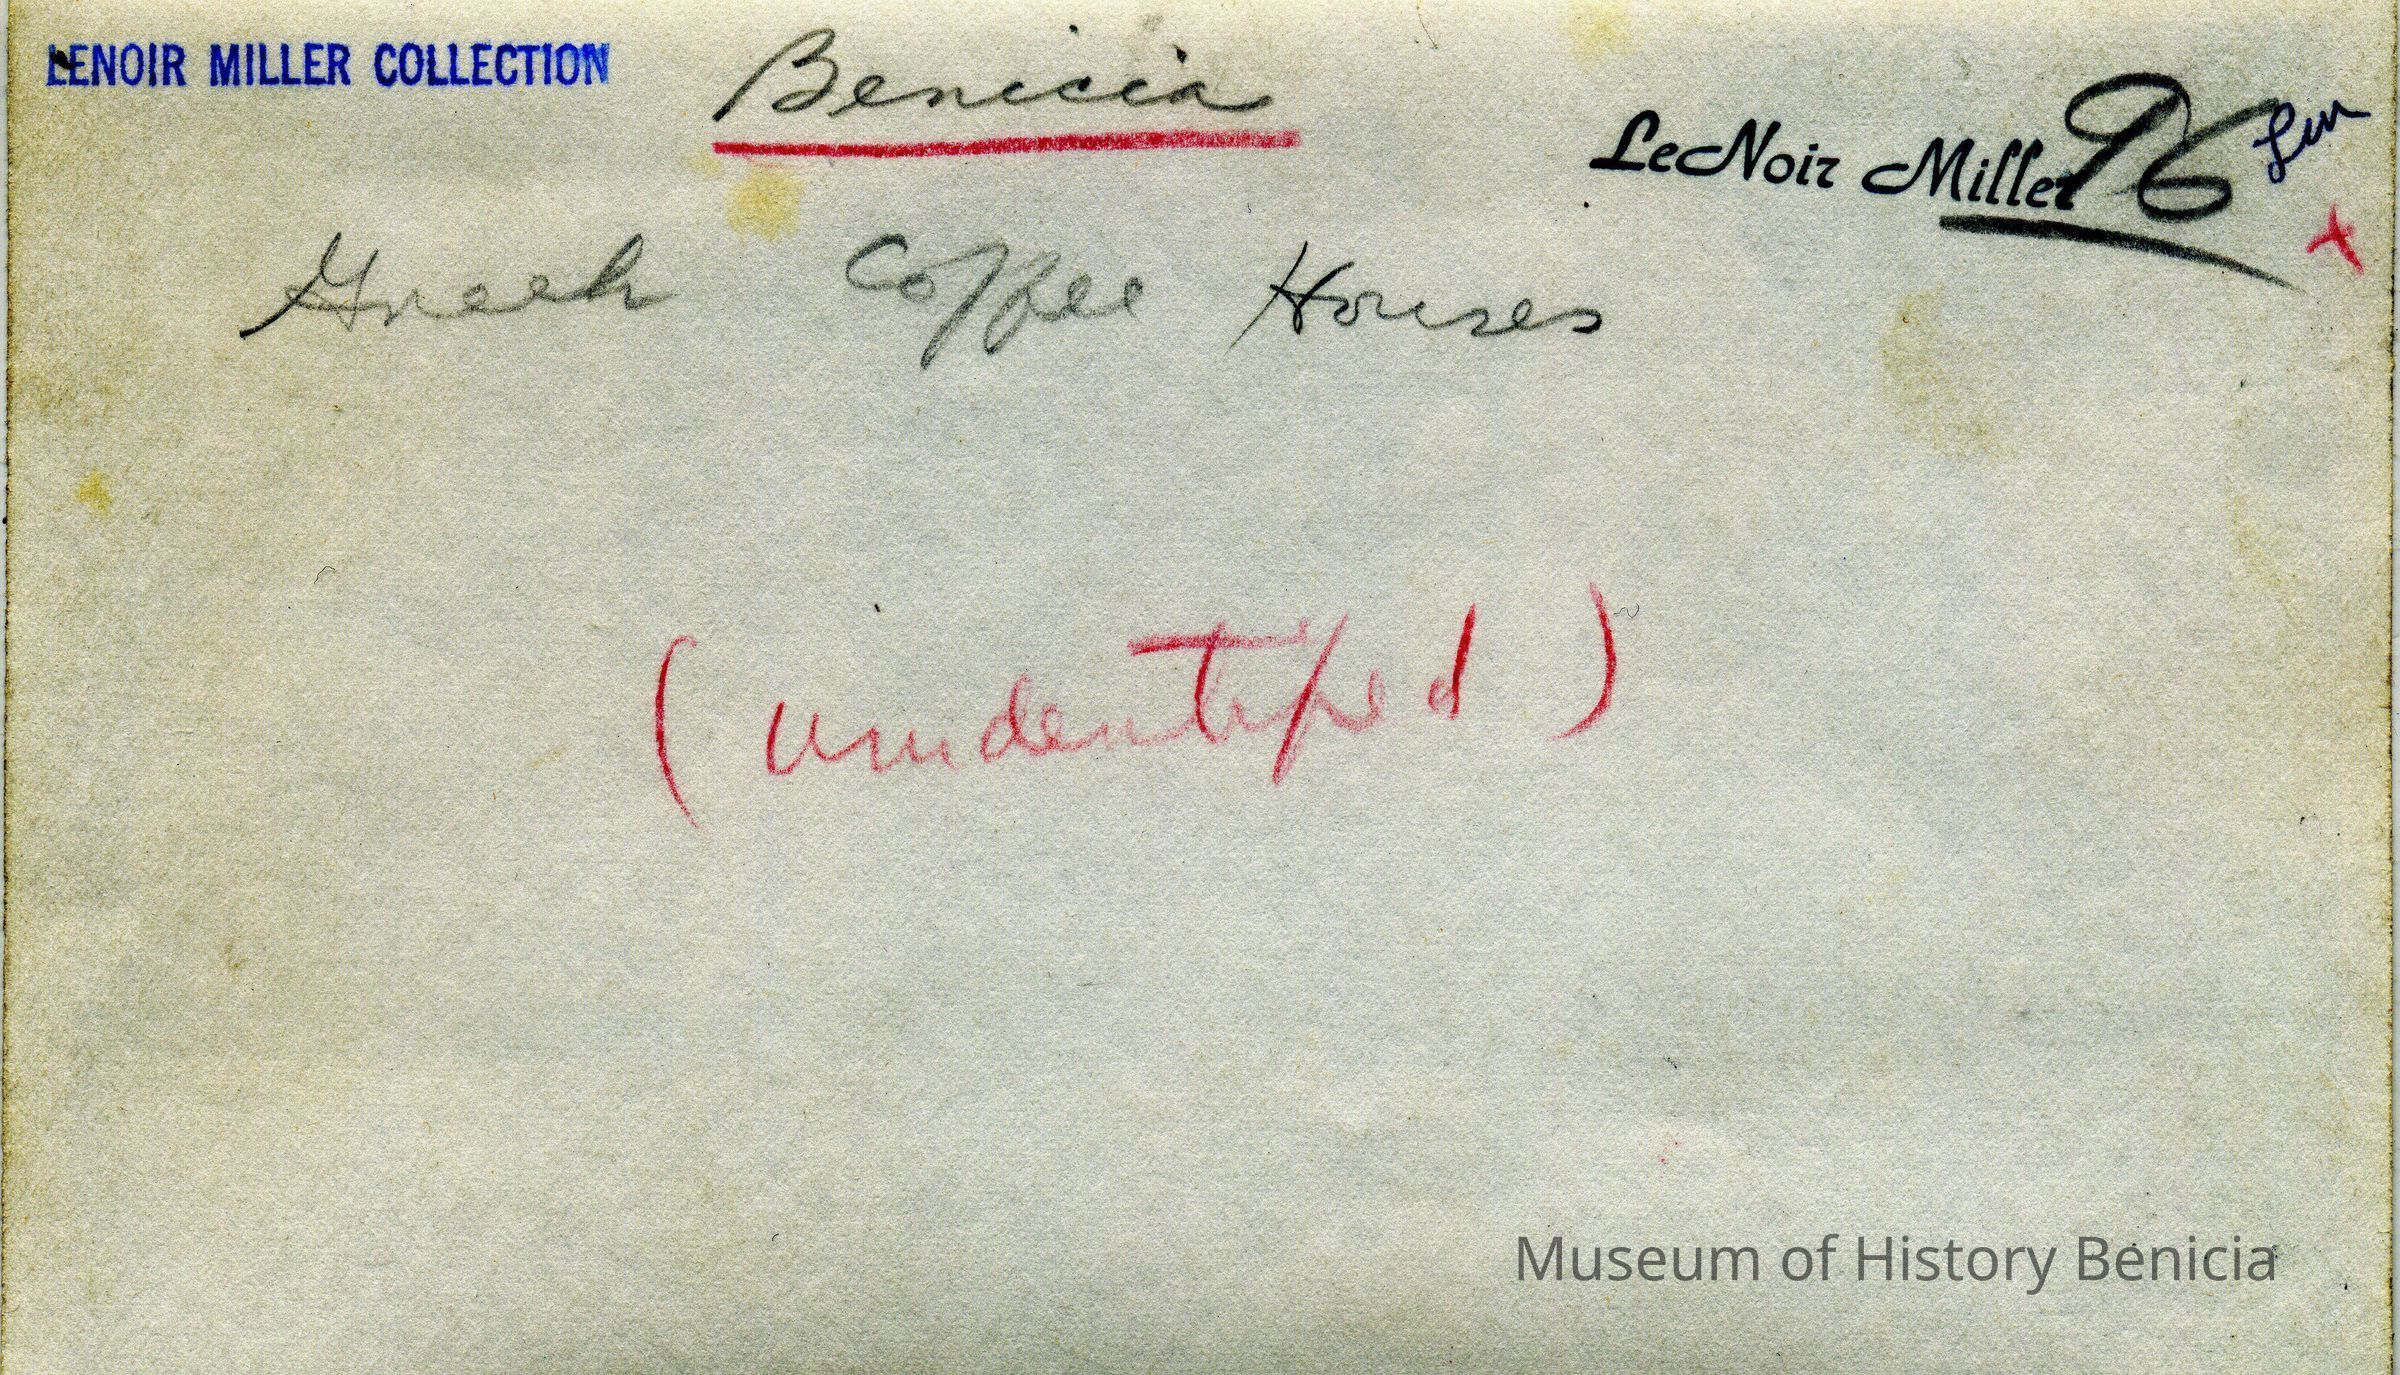 LENOIR MILLER COLLECTION
Benicia
LeNoir Miller 96
x
Greek Coffee Houses
(unidentified)
Museum of History Benicia